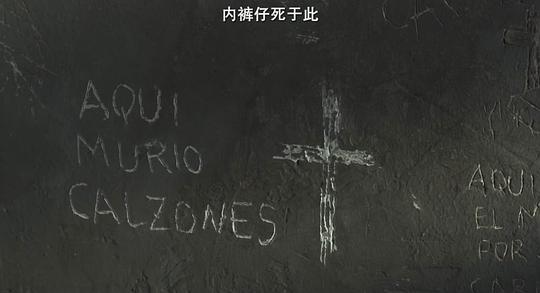 内裤仔死于此
AQUI
MURIO
CALZONES
AQUI
EL
POR